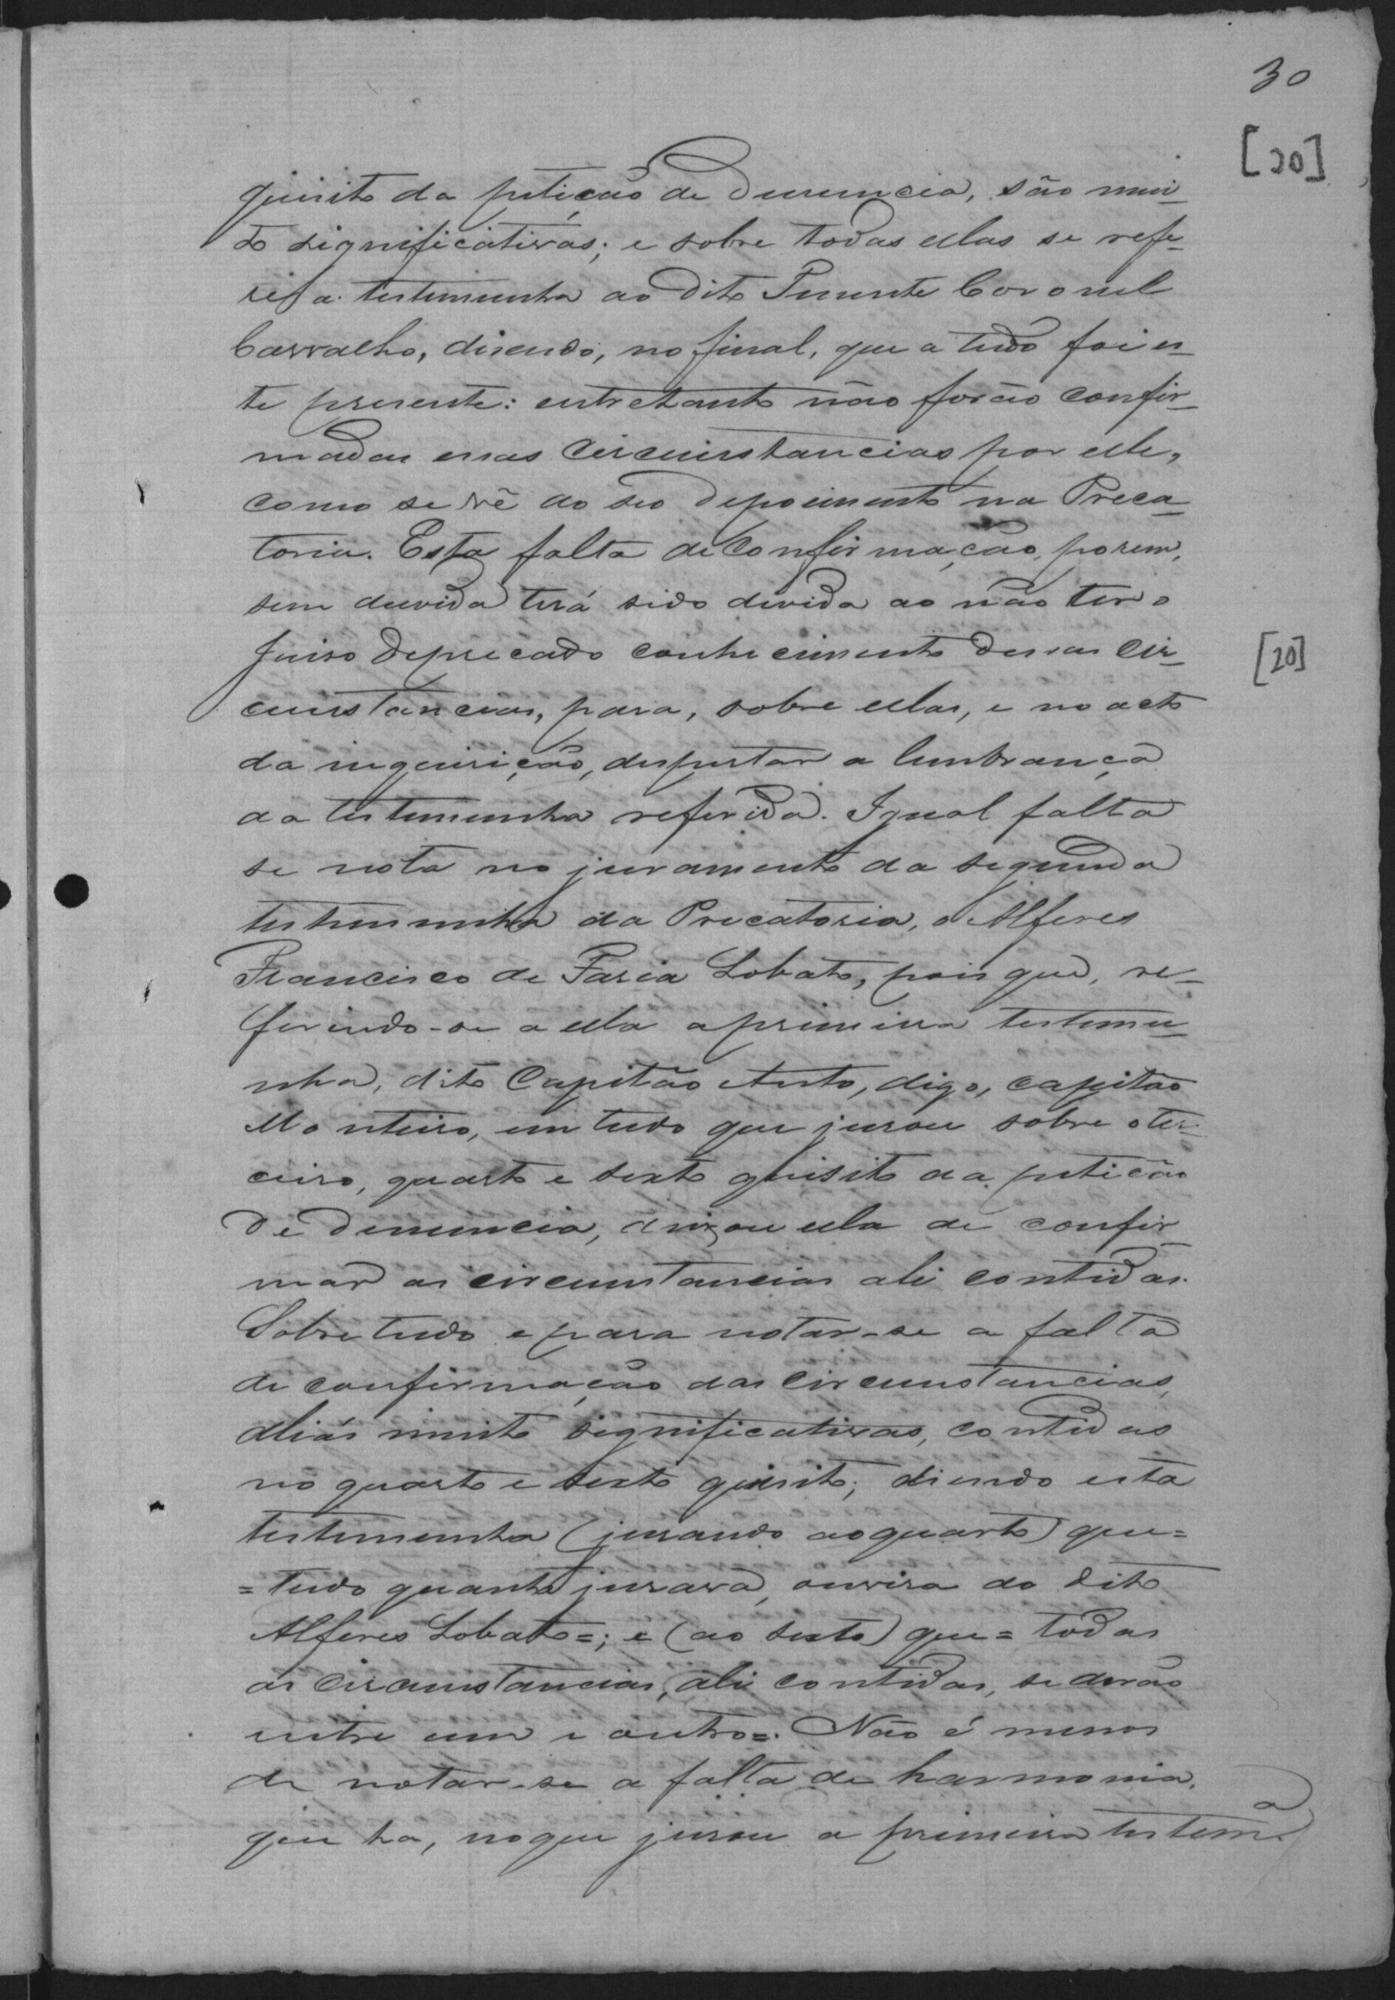 30
[20]
quisito da petição de Denuncia, são mui-
to significativas; e sobre todas ellas se refe-
rio a testemunha ao dito Tenente Coronel
Carvalho, disendo, no final, que a tudo foi es-
te presente: entretanto não forão confir-
madas essas circumstancias por elle,
como se vê do seo depoimento na Preca-
toria. Esta falta de confirmação, porem,
sem duvida terá sido devida ao não ter o
Juiso deprecado conhecimento dessas cir-
cunstancias, para, sobre ellas, e no acto
da inquirição, despertar a lembrança
da testemunha referida. Igual falta
se nota no juramento da segunda
testemunha da Precatoria, o Alferes
Francisco de Faria Lobato, pois que, re-
ferindo-se a ella a primeira testemu-
nha, dito Capitão Anto, digo, capitão
Monteiro, em tudo que jurou sobre o ter-
ceiro, quarto e sexto quisito da petição
de denuncia, deixou ella de confir-
mar as circumstancias ali contidas.
Sobre tudo é para notar-se a falta
de confirmação das circumstancias,
aliás muito significativas, contidas
no quarto e sexto quisito; disendo esta
testemunha (jurando ao quarto) que=
=tudo quanto jurara, ouvira do dito
Alferes Lobato=; e (ao sexto) que= todas
as circumstancias, ali contidas, se derão
entre um e outro=. Não é menos
de notar-se a falta de harmonia,
que ha, no que jurou a primeira testemª
[20]